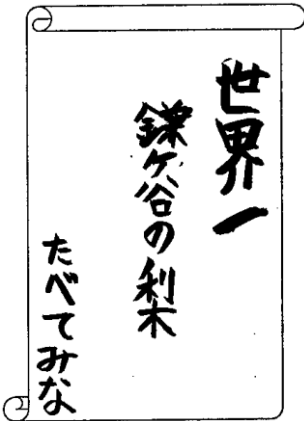 世界一
鎌ヶ谷の梨
たべてみな